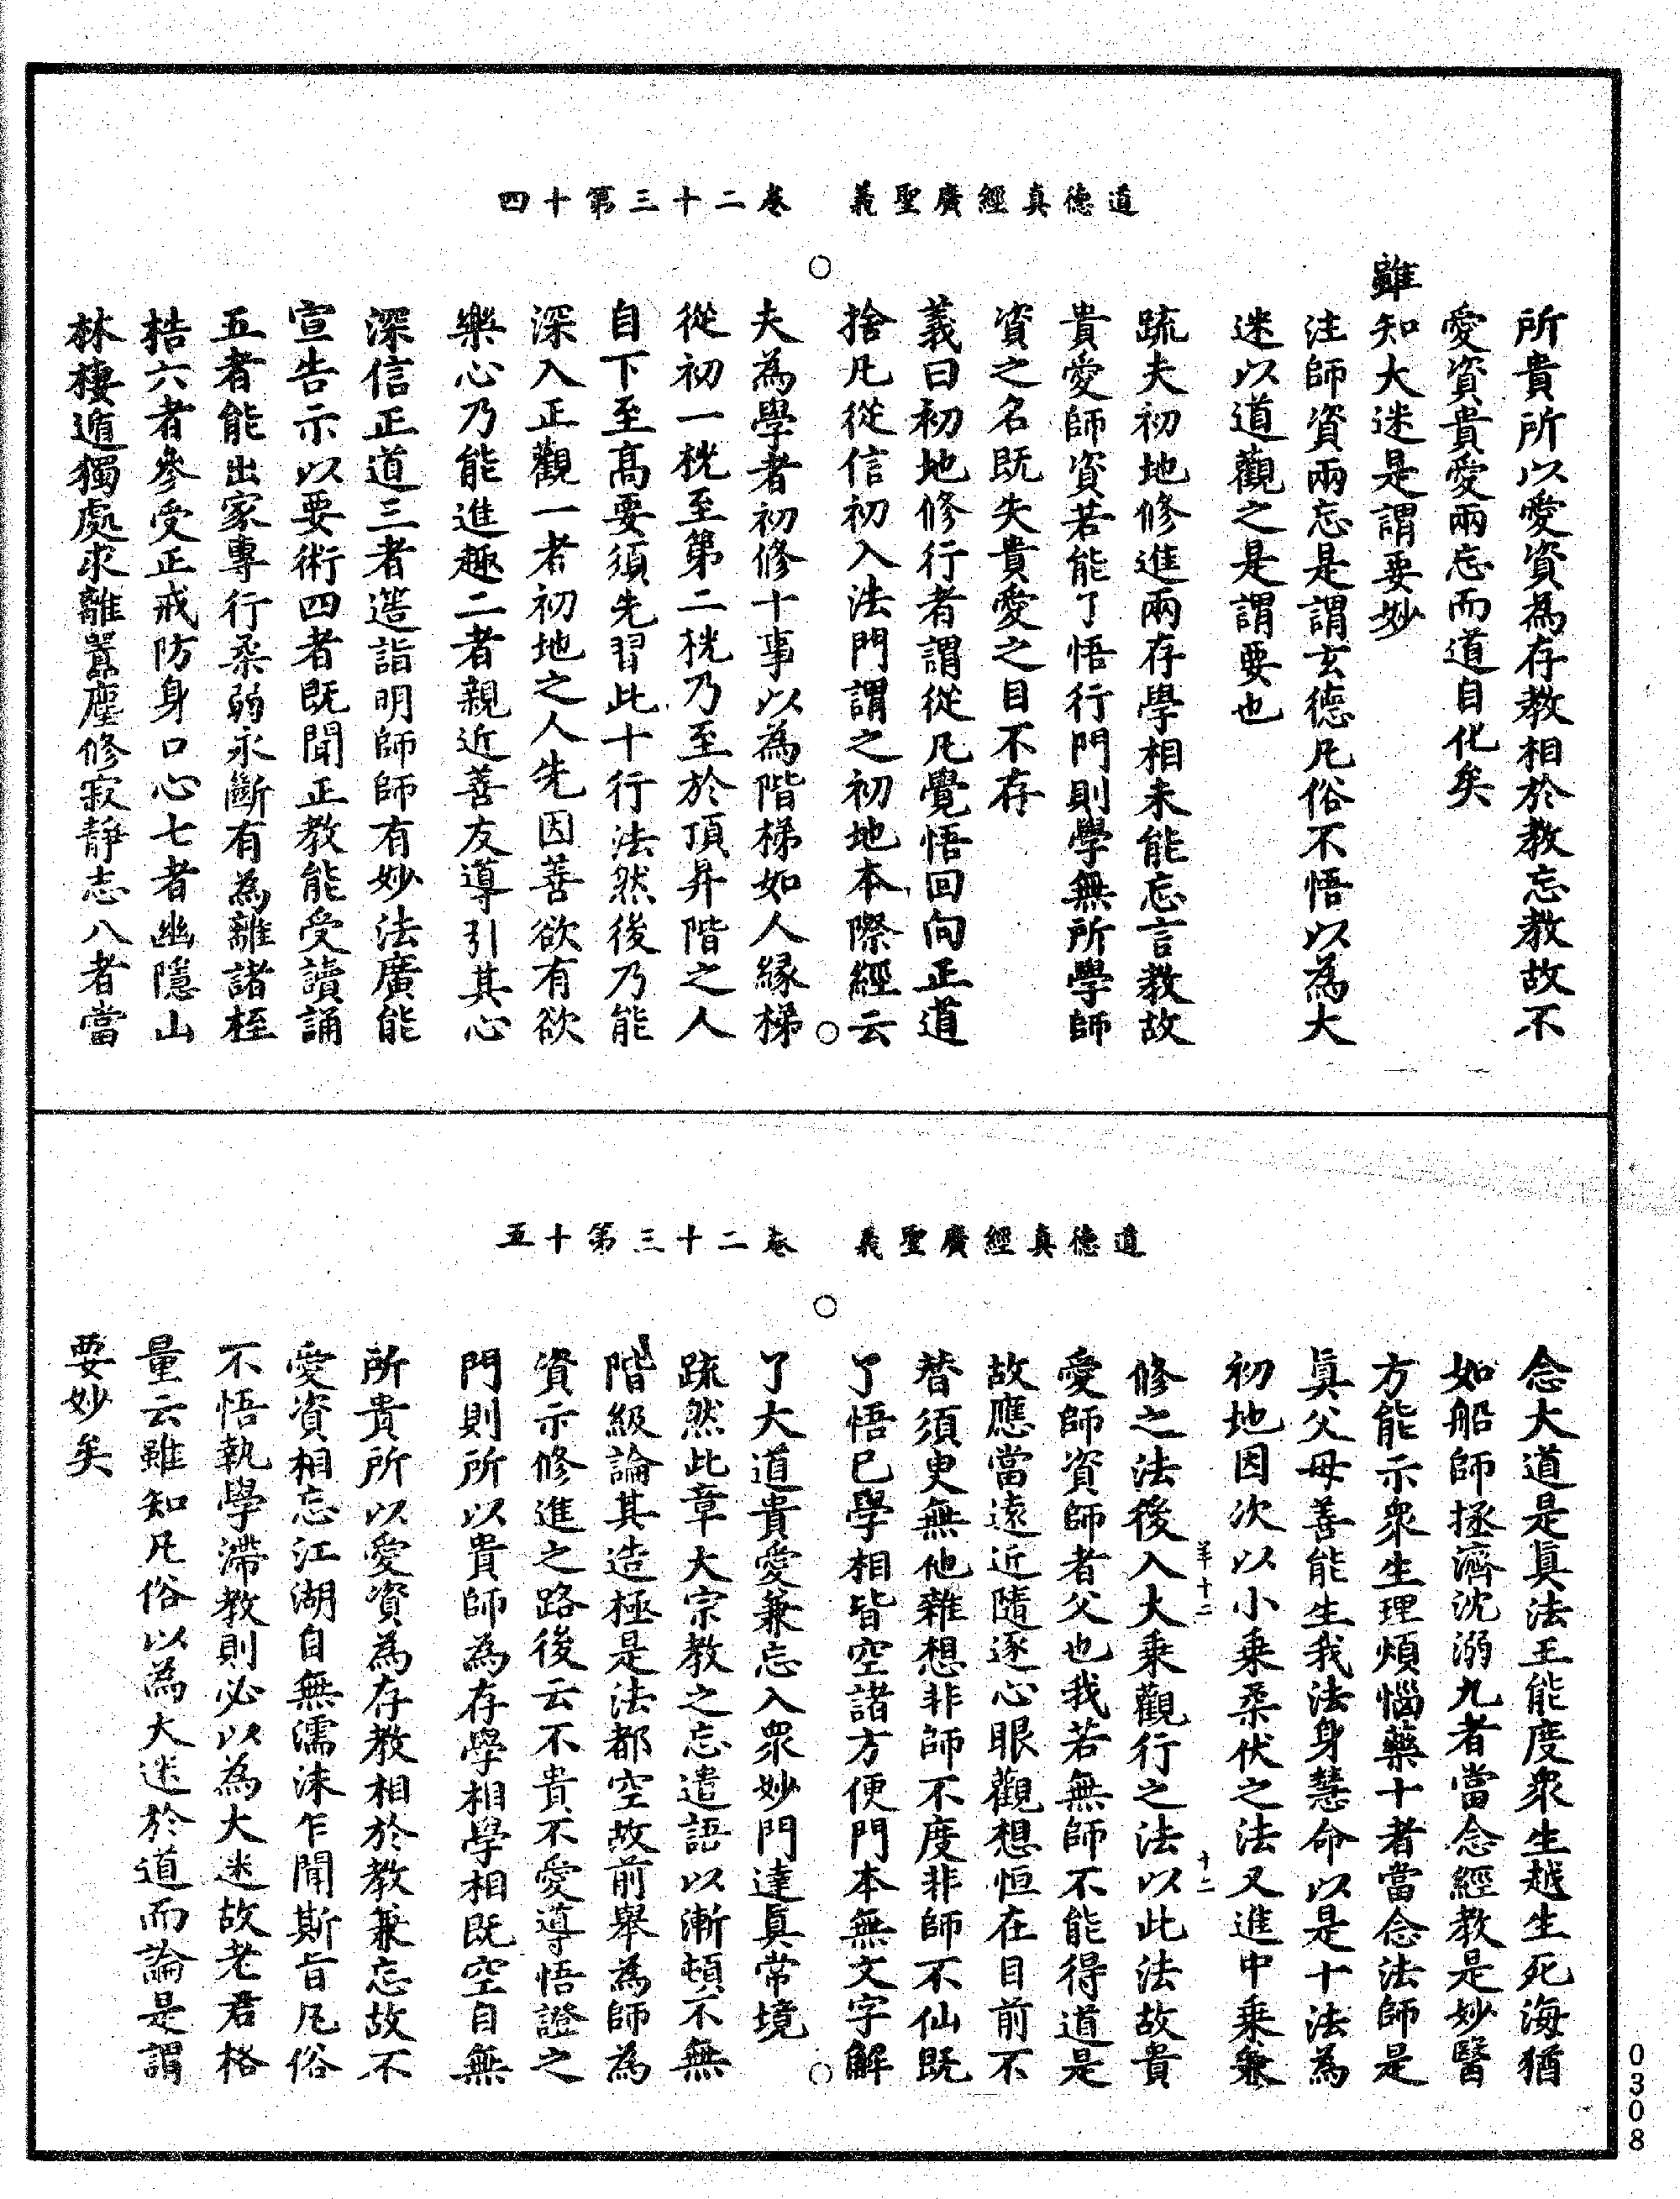 道德真經廣聖義　卷二十三第十四
所貴所以愛資為存教相於教忘教故不
愛資貴愛兩忘而道自化矣
雖知大迷是謂要妙
注師資兩忘是謂玄德凡俗不悟以為大
迷以道觀之是謂要也
疏夫初地修進兩存學相未能忘言教故
貴愛師資若能了悟行門則學無所學師
資之名既失貴愛之目不存
義曰初地修行者謂從凡覺悟回向正道
捨凡從信初入法門謂之初地本際經云
夫為學者初修十事以為階梯如人緣梯
從初一桄至第二桄乃至於頂昇階之人
自下至高要須先習此十行法然後乃能
深入正觀一者初地之人先因善欲有欲
樂心乃能進趣二者親近善友導引其心
深信正道三者造詣明師師有妙法廣能
宣告示以要術四者既聞正教能受讀誦
五者能出家專行柔弱永斷有為離諸桎
梏六者參受正戒防身口心七者幽隱山
林棲遁獨處求離囂塵修寂靜志八者當
道德真經廣聖義　卷二十三第十五
念大道是真法王能度眾生越生死海猶
如船師拯濟沈溺九者當念經教是妙醫
方能示眾生理煩惱藥十者當念法師是
真父母善能生我法身慧命以是十法為
初地因次以小乘柔伏之法又進中乘兼
羊十二　十二
修之法後入大乘觀行之法以此法故貴
愛師資師者父也我若無師不能得道是
故應當遠近隨逐心眼觀想恒在目前不
替須臾無他雜想非師不度非師不仙既
了悟已學相皆空諸方便門本無文字解
了大道貴愛兼忘入眾妙門達真常境
疏然此章大宗教之忘遣語以漸頓不無
階級論其造極是法都空故前舉為師為
資示修進之路後云不貴不愛導悟證之
門則所以貴師為存學相學相既空自無
所貴所以愛資為存教相於教兼忘故不
愛資相忘江湖自無濡沫乍聞斯旨凡俗
不悟執學滯教則必以為大迷故老君格
量云雖知凡俗以為大迷於道而論是謂
要妙矣
0308